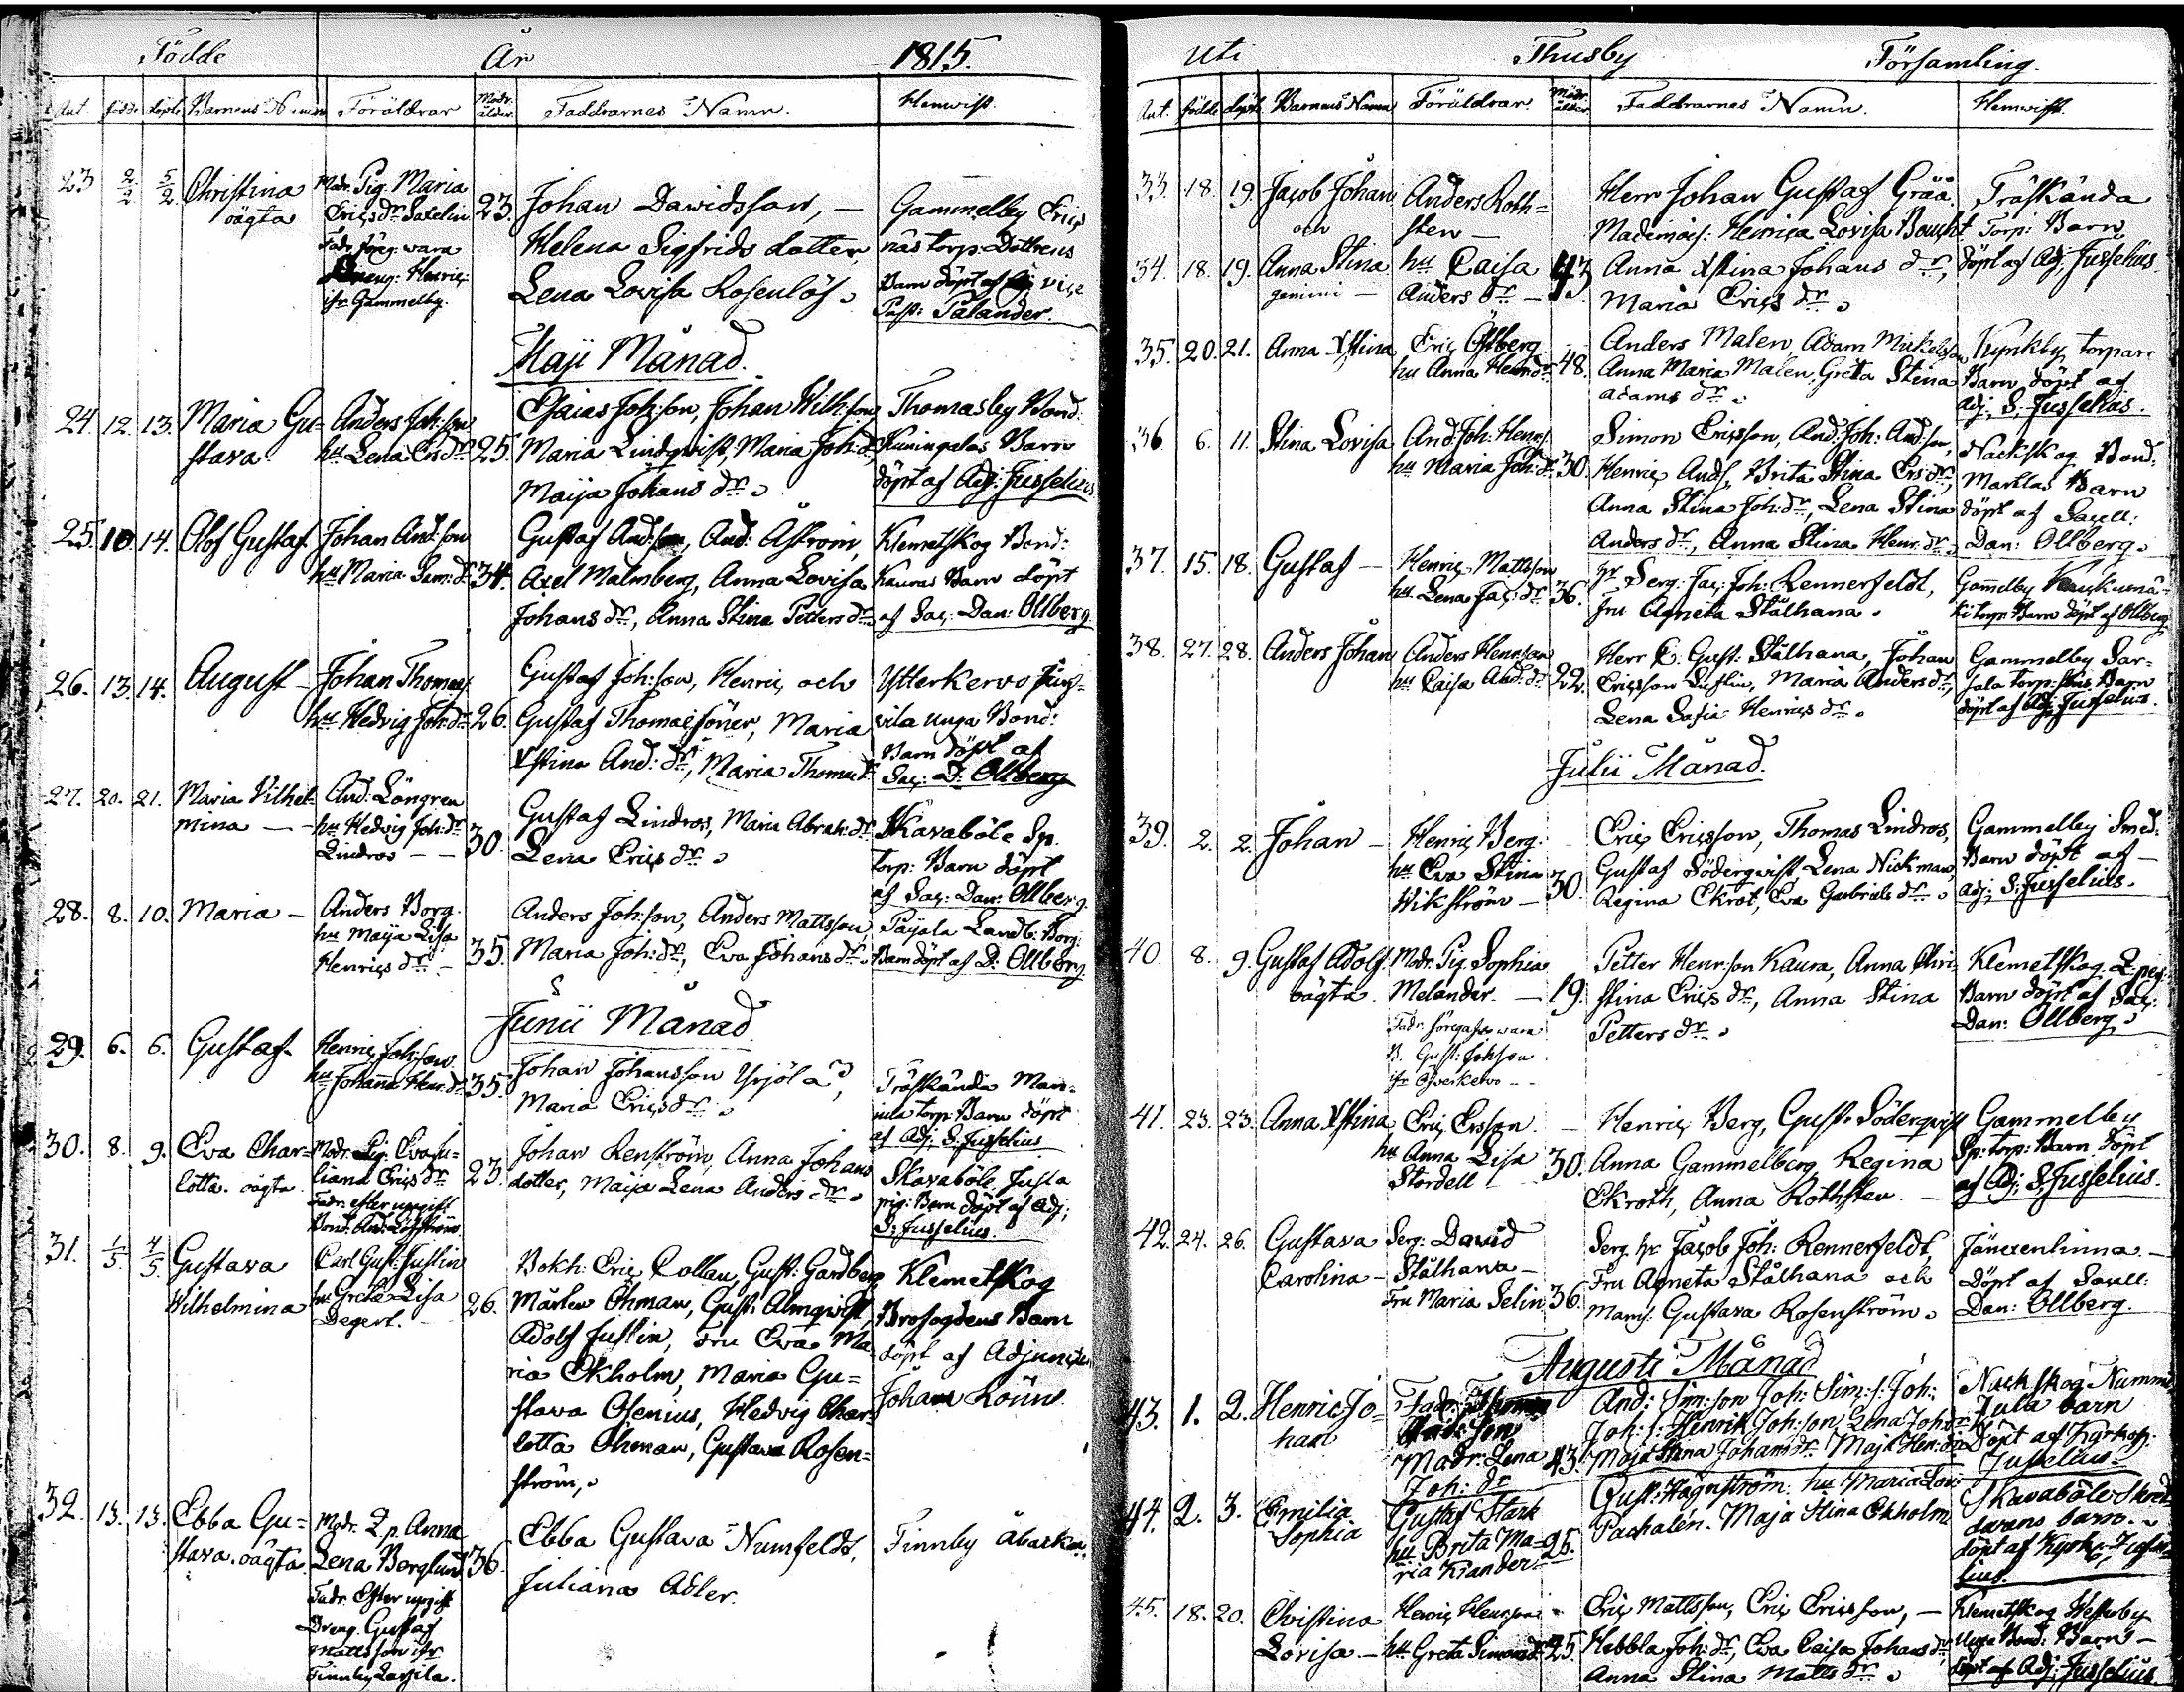 Födde År 1815.
Ant. födde döpte Barnens Namn Föräldrar Modr. ålder Faddrarnes Namn. Hemvist.
23 2/2 5/2 Christina oägta
Modr. Pig. Maria
Erics dr
Fadr. föreg. vara
Dreng: Henric:
ifr Gammelby.
23.
Johan Davidsson, —
Helena Sigfrids dotter
Lena Lovisa Rosenlöf.
Gammelby Erics
näs torp. Dottrens
Barn döpt af vice
Past: Palander.
Maji Månad.
24. 12. 13. Maria Gu=
stava
Anders Joh:son
hu Lena Ers dr
25.
Esaias Joh:son, Johan Wilh:son
Maria Lindqvist, Maria Joh:dr
Maija Johans dr.
Thomasby Bond:
Kuningalas Barn
döpt af Adj: Jusselius
25. 10 14. Olof Gustaf.
Johan And:son
hu Maria Sim: dr
34.
Gustaf And:son, And: Åström,
Axel Malmberg, Anna Lovisa
Johans dr, Anna Stina Petters dr
Klemetskog Bond:
Kauras Barn döpt
af Sac: Dan: Ollberg.
26. 13. 14. August —
Johan Thomæs
hu Hedvig Joh: dr
26.
Gustaf Joh:son, Henric och
Gustaf Thomæ söner, Maria
Xstina And: dr, Maria Thomæ dr
Ytterkervo
vila unga Bond:
Barn döpt af
Sac: D: Ollberg
27. 20. 21. Maria Vilhel=
mina —
And: Löngren
hu Hedvig Joh: dr
Lindros —
30.
Gustaf Lindros, Maria Abrah: dr
Lena Erics dr.
Skavaböle Sp.
torp: Barn döpt
af Sac: Dan: Ollberg.
28. 8. 10. Maria —
Anders Borg.
hu Maija Lisa
Henrics dr —
35.
Anders Joh:son, Anders Mattsson,
Maria Joh: dr, Eva Johans dr.
Pajala Landb: Borg:
Barn döpt af D: Ollberg
Junii Månad.
29. 6. 6. Gustaf.
Henric Joh:son
hu Johanna Henr: dr
35.
Johan Johansson Yrjölä,
Maria Erics dr.
Träskända Man=
nila torp: Barn döpt
af Adj: S: Jusselius
30. 8. 9. Eva Char=
lotta. oägta
Modr. Pig. Eva Ju=
liana Erics dr
Fadr. efter upgift
Bond: And: Löfström
23.
Johan Renström, Anna Johans
dotter, Maija Lena Anders dr.
Skavaböle Justa
pig: Barn döpt af Adj:
S: Jusselius.
31. 1/5 4/5 Gustava
Wilhelmina
Carl Gust: Justin
hu Greta Lisa
Degert.
26.
Bokh: Eric Collan, Gust: Gardberg
Mårten Öhman, Gust: Almqvist,
Adolf Justin, Fru Eva Ma=
ria Ekholm, Maria Gu=
stava Asenius, Hedvig Char=
lotta Öhman, Gustava Rosen=
ström,
Klemetskog
Brofogdens Barn
döpt af Adjuncten
Johan Rönn
32. 13. 13. Ebba Gu=
stava. oägta
Modr. Z p. Anna
Lena Berglund
Fadr. Efter upgift
Dreng. Gustaf
Mattsson ifr
Finnby Lassila.
36.
Ebba Gustava Numfeldt,
Juliana Adler.
Finnby
Uti Thusby Församling.
Ant. födde döpte Barnens Namn Föräldrar. Modr. ålder Faddrarnes Namn. Hemvist.
33. 18. 19. Jacob Johan
och
34. 18. 19. Anna Stina
gemini —
Anders Roth=
sten —
hu Caisa
Anders dr —
43
Herr Johan Gustaf Gråå.
Mademois: Henrica Lovisa Baucht
Anna Xstina Johans dr,
Maria Erics dr.
Träskända
Torp: Barn
döpt af Adj: Jusselius.
35. 20. 21. Anna Xstina
Eric Östberg
hu Anna Henr dr
48.
Anders Malen, Adam Mickelsson
Anna Maria Malen, Greta Stina
Adams dr.
Kynkby torpare
Barn döpt af
Adj: S: Jusselius.
36. 6. 11. Stina Lovisa
And: Joh: Henrs.
hu Maria Joh: dr
30.
Simon Ericsson, And: Joh: And:son,
Henric Ands, Brita Stina Ers dr,
Anna Stina Joh: dr, Lena Stina
Anders dr, Anna Stina Henr: dr.
Nackskog Bond:
Marklas Barn
döpt af Sacell:
Dan: Ollberg.
37. 15. 18. Gustaf —
Henric Mattsson
hu Lena Jac: dr
36.
hr Serg: Jac: Joh: Rennerfeldt,
Fru Agneta Stålhana.
Gammelby
torp: Barn döpt af Ollberg.
38. 27. 28. Anders Johan
Anders Henr:son
hu Caisa And: dr
22.
Herr C: Gust: Stålhana, Johan
Ericsson Luslin, Maria Anders dr,
Lena Sofia Henrics dr.
Gammelby Sar=
sala torp: Barn
döpt af Adj: Jusselius.
Julii Månad.
39. 2. 2. Johan —
Henric Berg.
hu Eva Stina
Wikström —
30.
Eric Ericsson, Thomas Lindros,
Gustaf Söderqvist, Lena Nickman,
Regina Ekrot, Eva Gabriels dr.
Gammelby Smed:
Barn döpt af —
Adj: S: Jusselius.
40. 8. 9. Gustaf Adolf.
oägta.
Modr. Pig. Sophia
Melander. —
Fadr. föregafs vara
B. Gust: Johson
ifr Öfverkervo —
19.
Petter Henr:son Kaura, Anna Chri=
stina Erics dr, Anna Stina
Petters dr.
Klemetskog Z. peg:
Barn döpt af Sac:
Dan: Ollberg.
41. 23. 23. Anna Xstina
Eric Ersson —
hu Anna Lisa
Stordell —
30.
Henric Berg, Gust: Söderqvist
Anna Gammelberg, Regina
Ekroth, Anna Rothsten. —
Gammelby
Sp: torp: Barn döpt
af Adj: S: Jusselius.
42. 24. 26. Gustava
Carolina —
Serg: David
Stålhana —
Fru Maria Selin
36.
Serg. hr Jacob Joh: Rennerfeldt,
Fru Agneta Stålhana och
Mams: Gustava Rosenström.
Jänexenlinna —
Döpt af Sacell:
Dan: Ollberg.
Augusti Månad
43. 1. 2. Henric Jo=
han
Fadr.
Modr. Lena
Joh: dr
43.
And: Sim:son Joh: Sim: s: Joh:
Joh: s: Henrik Joh:son, Lena Joh:dr
Maja Stina Johans dr. Maja Hen: dr
Nackskog Nummi
Jula barn
Döpt af Kyrkoh:
Jusselius.
44. 2. 3. Emilia
Sophia
Gustaf Stark
hu Brita Ma=
ria Kiander
25.
Gust: Hägerström. hu Maria Lov:
Pachalén. Maja Stina Ekholm
Skavaböle Skred=
darens barn.
döpt af Kyrko: Jusse=
lius.
45. 18. 20. Christina
Lovisa. —
Henric Henr:son
hu Greta Simons dr
25.
Eric Mattsson, Eric Ericsson, —
Hebbla Joh: dr, Eva Caisa Johans dr,
Anna Stina Matts dr.
Klemetskog Westerby
Unga Bond: Barn —
döpt af Adj: Jusselius.